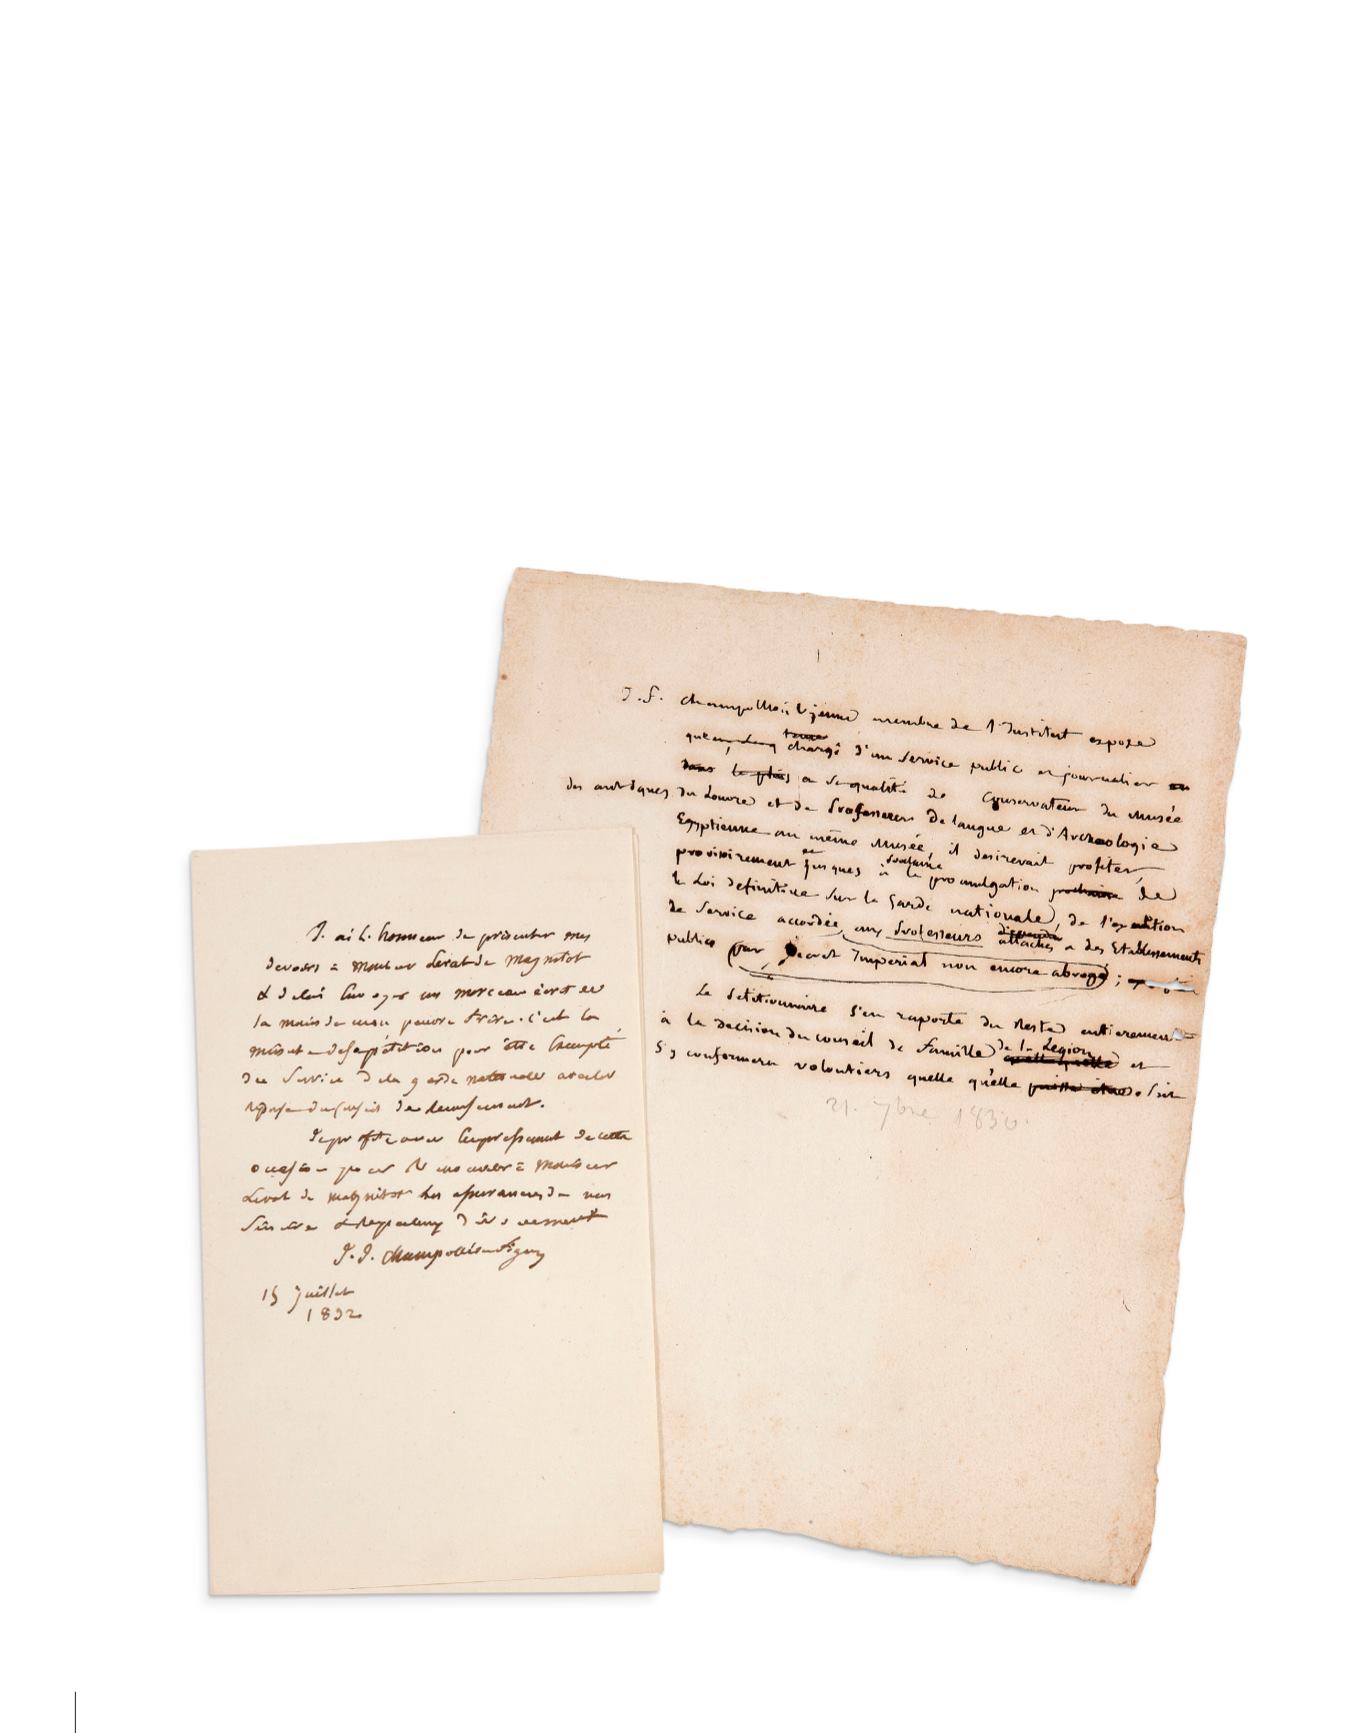 J. F. Champollion le jeune membre de l'Institut expose
que chargé d'un service public et journalier en
dans le plus a sa qualité de Conservateur du Musée
des antiques du Louvre et de Professeur de langue et d'Archeologie
Egyptienne au même Musée, il desirerait profiter
provisoirement et jusques à la prochaine promulgation prochaine de
la Loi definitive sur la Garde nationale, de l'exemtion
de Service accordée aux Professeurs attachés a des Etablissements
publics par Decret Imperial non encore abrogé ;
Le Petitionnaire s'en raporte du Reste entierement
à la Decision du conseil de Famille de la Legion et
s'y conformera volontiers quelle qu'elle puisse être soit
21. 7bre 1830.
J'ai l'honneur de présenter mes
devoirs à Monsieur Levat de Magnitot
& de lui Envoyer un morceau écrit de
la main de mon pauvre frère. C'est la
minute de sa pétition pour être Exempté
du Service de la garde nationale avec la
réponse du Conseil de Recensement.
Je profite avec Empressement de cette
occasion pour Renouveler à Monsieur
Levat de Magnitot les assurances de mon
Sincère & Respectueux dévouement
J. J. Champollion figeac
15 juillet
1832